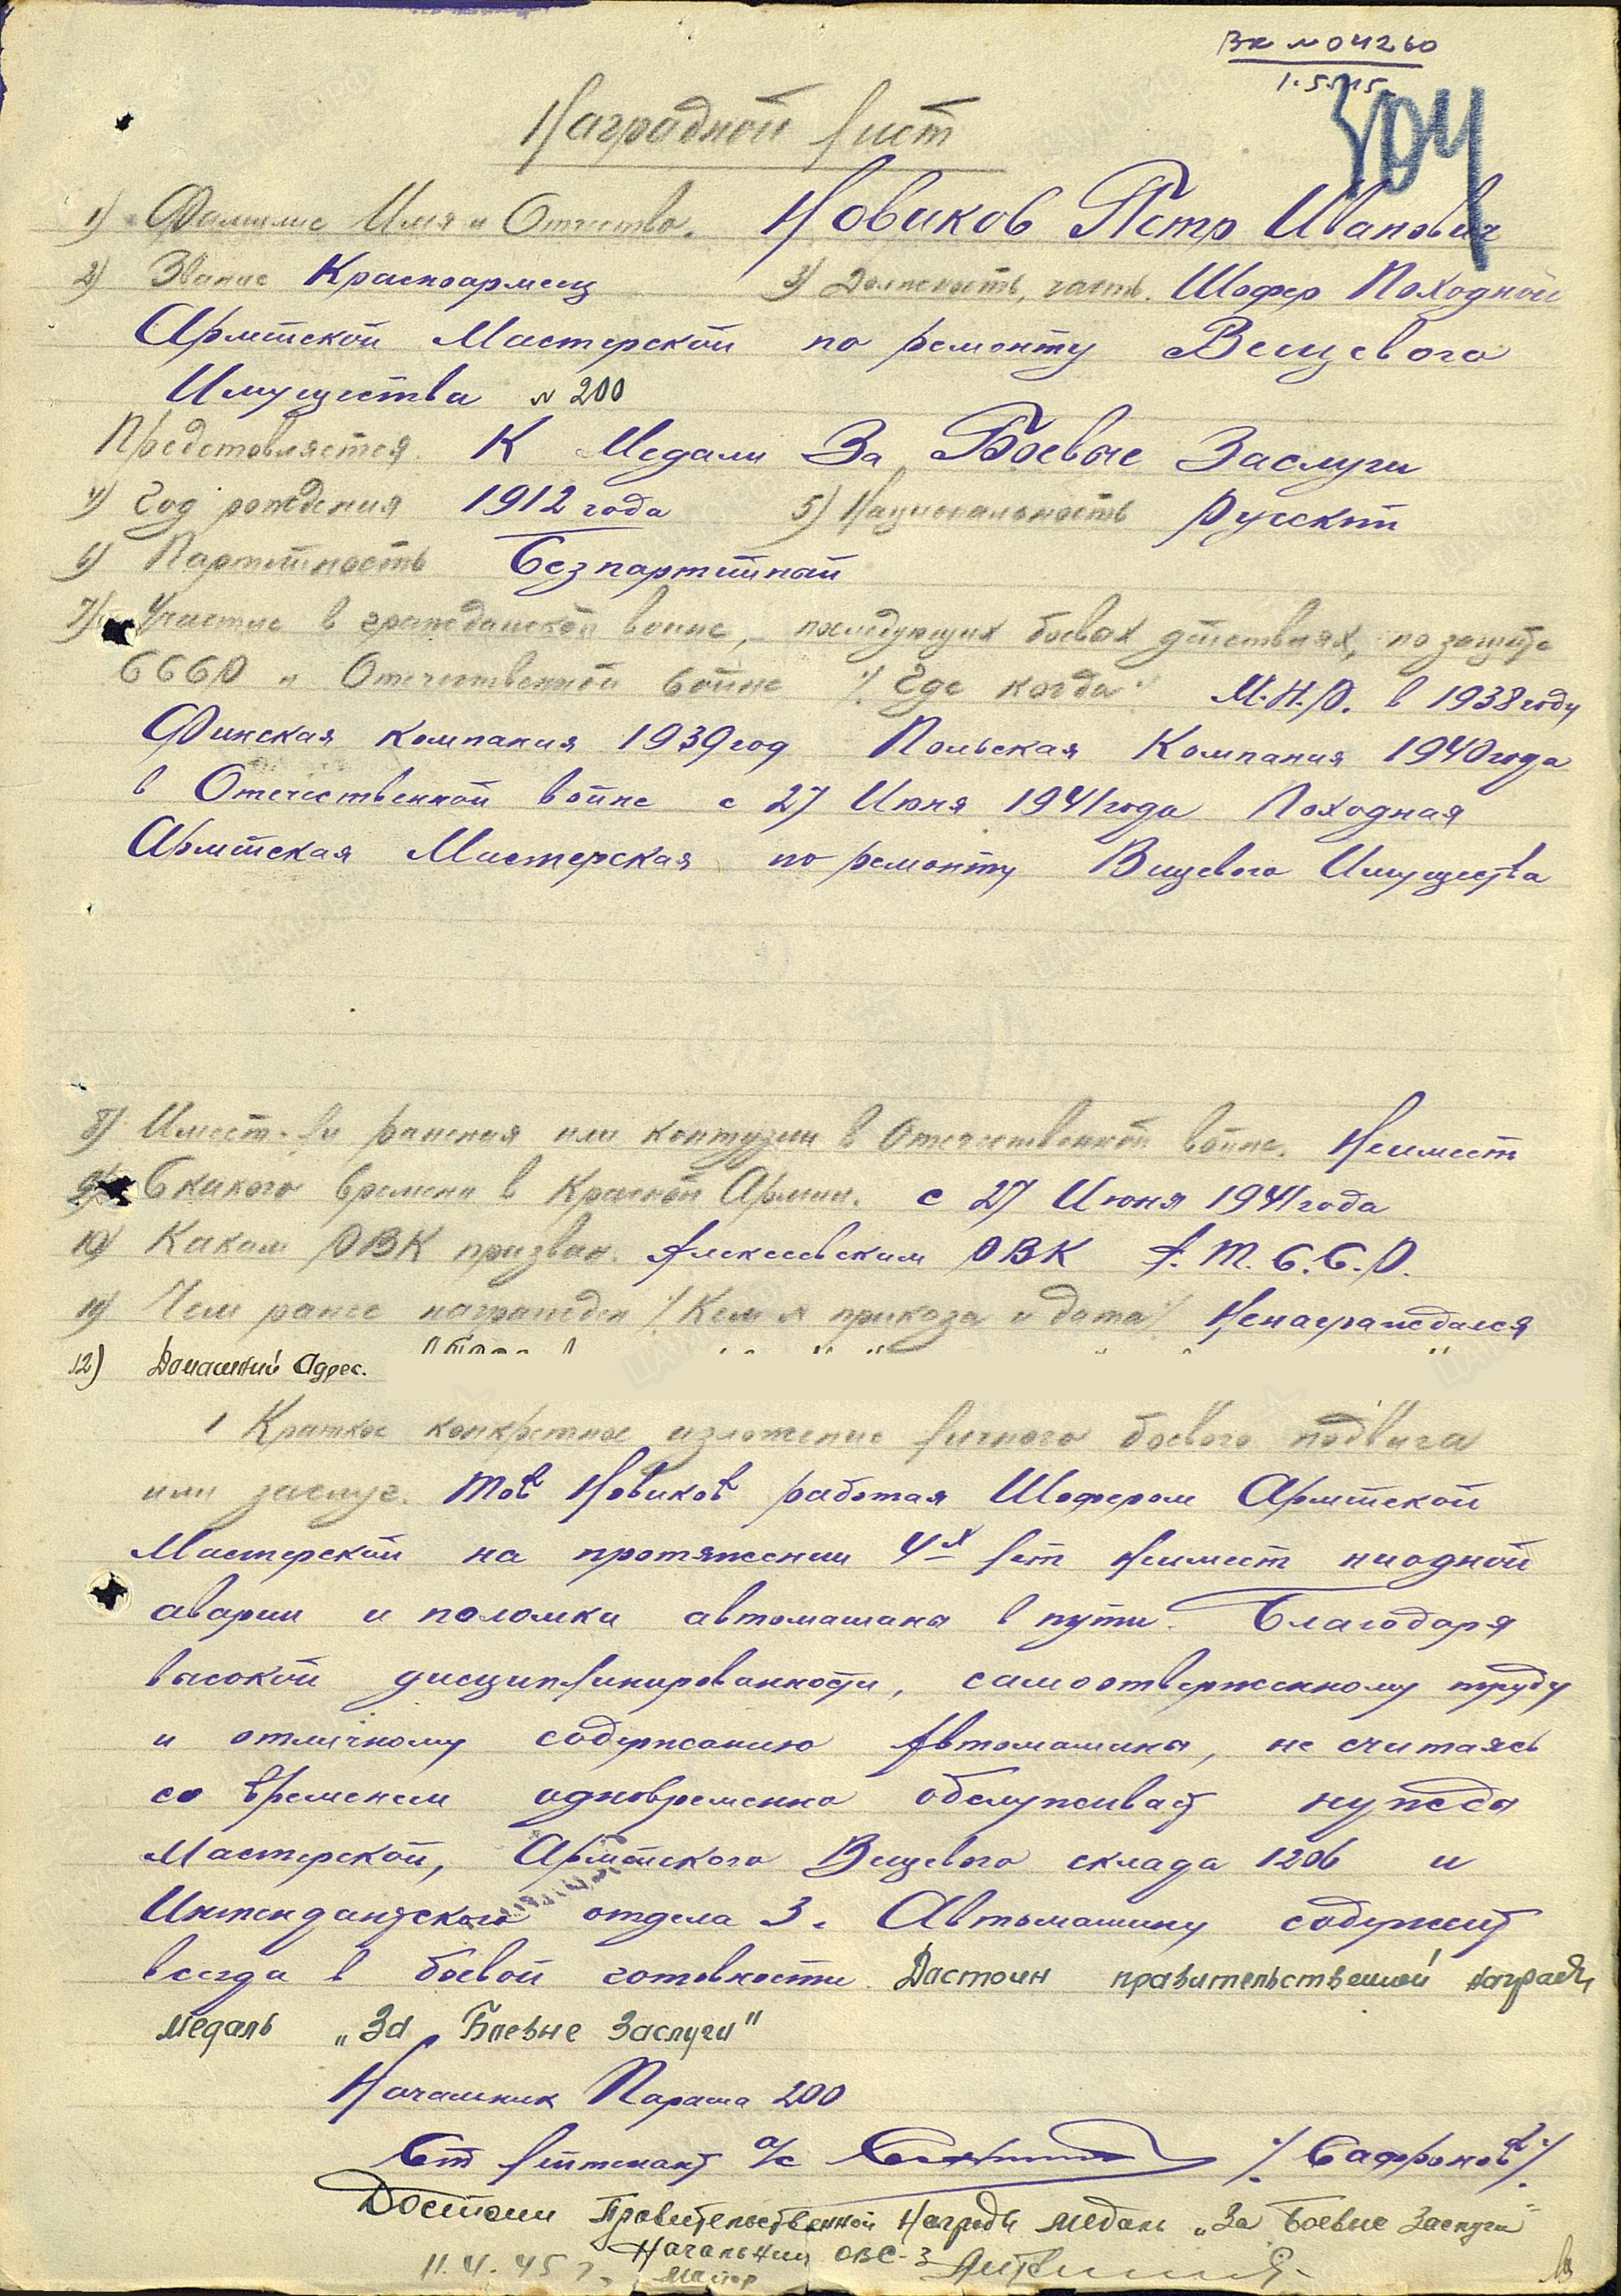 Вх №04260
1.5.45
304
Наградной лист
1) Фамилие Имя и Отчество. Новиков Петр Иванович
2) Звание Красноармеец 3) Должность, часть. Шофер Походной
Армейской Мастерской по ремонту Вещевого
Имущества № 200
Представляется К Медали За Боевые Заслуги
4) Год рождения 1912 года 5) Национальность Русский
6) Партийность Безпартийный
7) Участие в гражданской войне, последующих боевых действиях, по защите
СССР и Отечественной войне /. Где когда ./ М.Н.Р. в 1938 году
Финская компания 1939 год Польская Компания 1940 года
в Отечественной войне с 27 Июня 1941 года Походная
Армейская Мастерская по ремонту Вещевого Имущества
8) Имеет-ли ранения или контузии в Отечественной войне. Неимеет
9) С какого времени в Красной Армии. с 27 Июня 1941 года
10) Каким РВК призван. Алексеевским РВК А. Т. С. С. Р.
11) Чем ранее награжден /. Кем № приказа и дата ./ Ненаграждался
12) Домашний Адрес.
1 Краткое конкретное изложение личного боевого подвига
или заслуг. Тов Новиков работая Шофером Армейской
Мастерской на протяжении 4х лет Неимеет ниодной
аварии и поломки автомашины в пути. Благодаря
высокой дисциплинированности, самоотверженному труду
и отличному содержанию Автомашины, не считаясь
со временем одновременно обслуживает нужды
Мастерской, Армейского Вещевого склада 1206 и
Интендантского отдела 3. Автомашину содержит
всегда в боевой готовности. Достоин правительственной награды
медаль „За Боевые Заслуги"
Начальник Парма 200
Ст лейтенант а/с /. Сафронов ./
Достоин Правительственной Награды медаль „За Боевые Заслуги"
Начальник ОВС-3
11.4.45 г. Майор